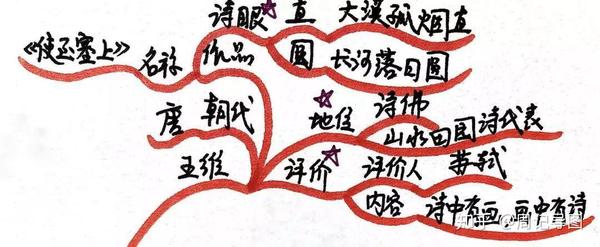 诗眼 直 大漠孤烟直
《使至塞上》 名称 作品 圆 长河落日圆
唐 朝代 地位 诗佛
山水田园诗代表
王维 评价 评价人 苏轼
内容 诗中有画 画中有诗
知乎 @周记导图